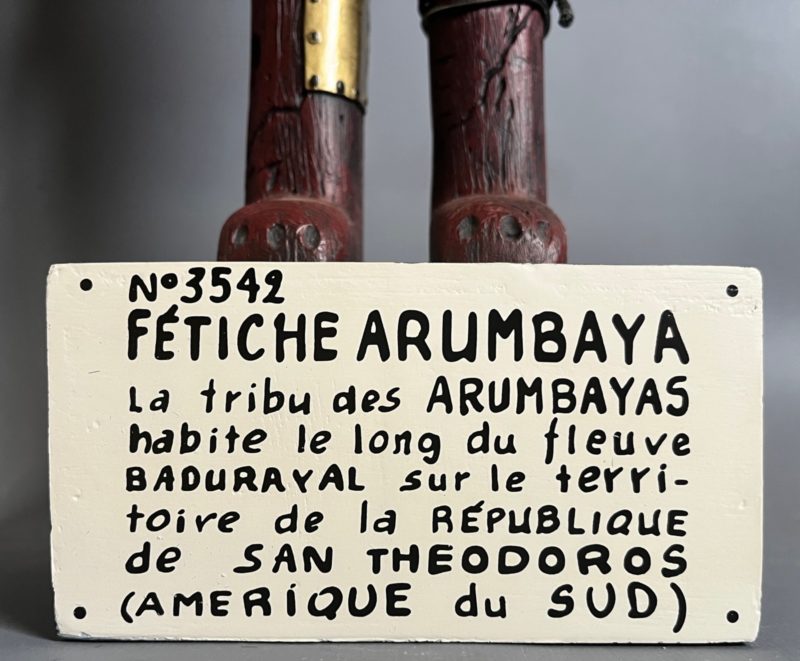 Nº3542
FÉTICHE ARUMBAYA
La tribu des ARUMBAYAS
habite le long du fleuve
BADURAYAL sur le terri-
toire de la RÉPUBLIQUE
de SAN THEODOROS
(AMERIQUE du SUD)